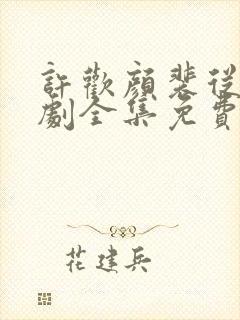 許歡顔裴從
劇全集免費
花建兵